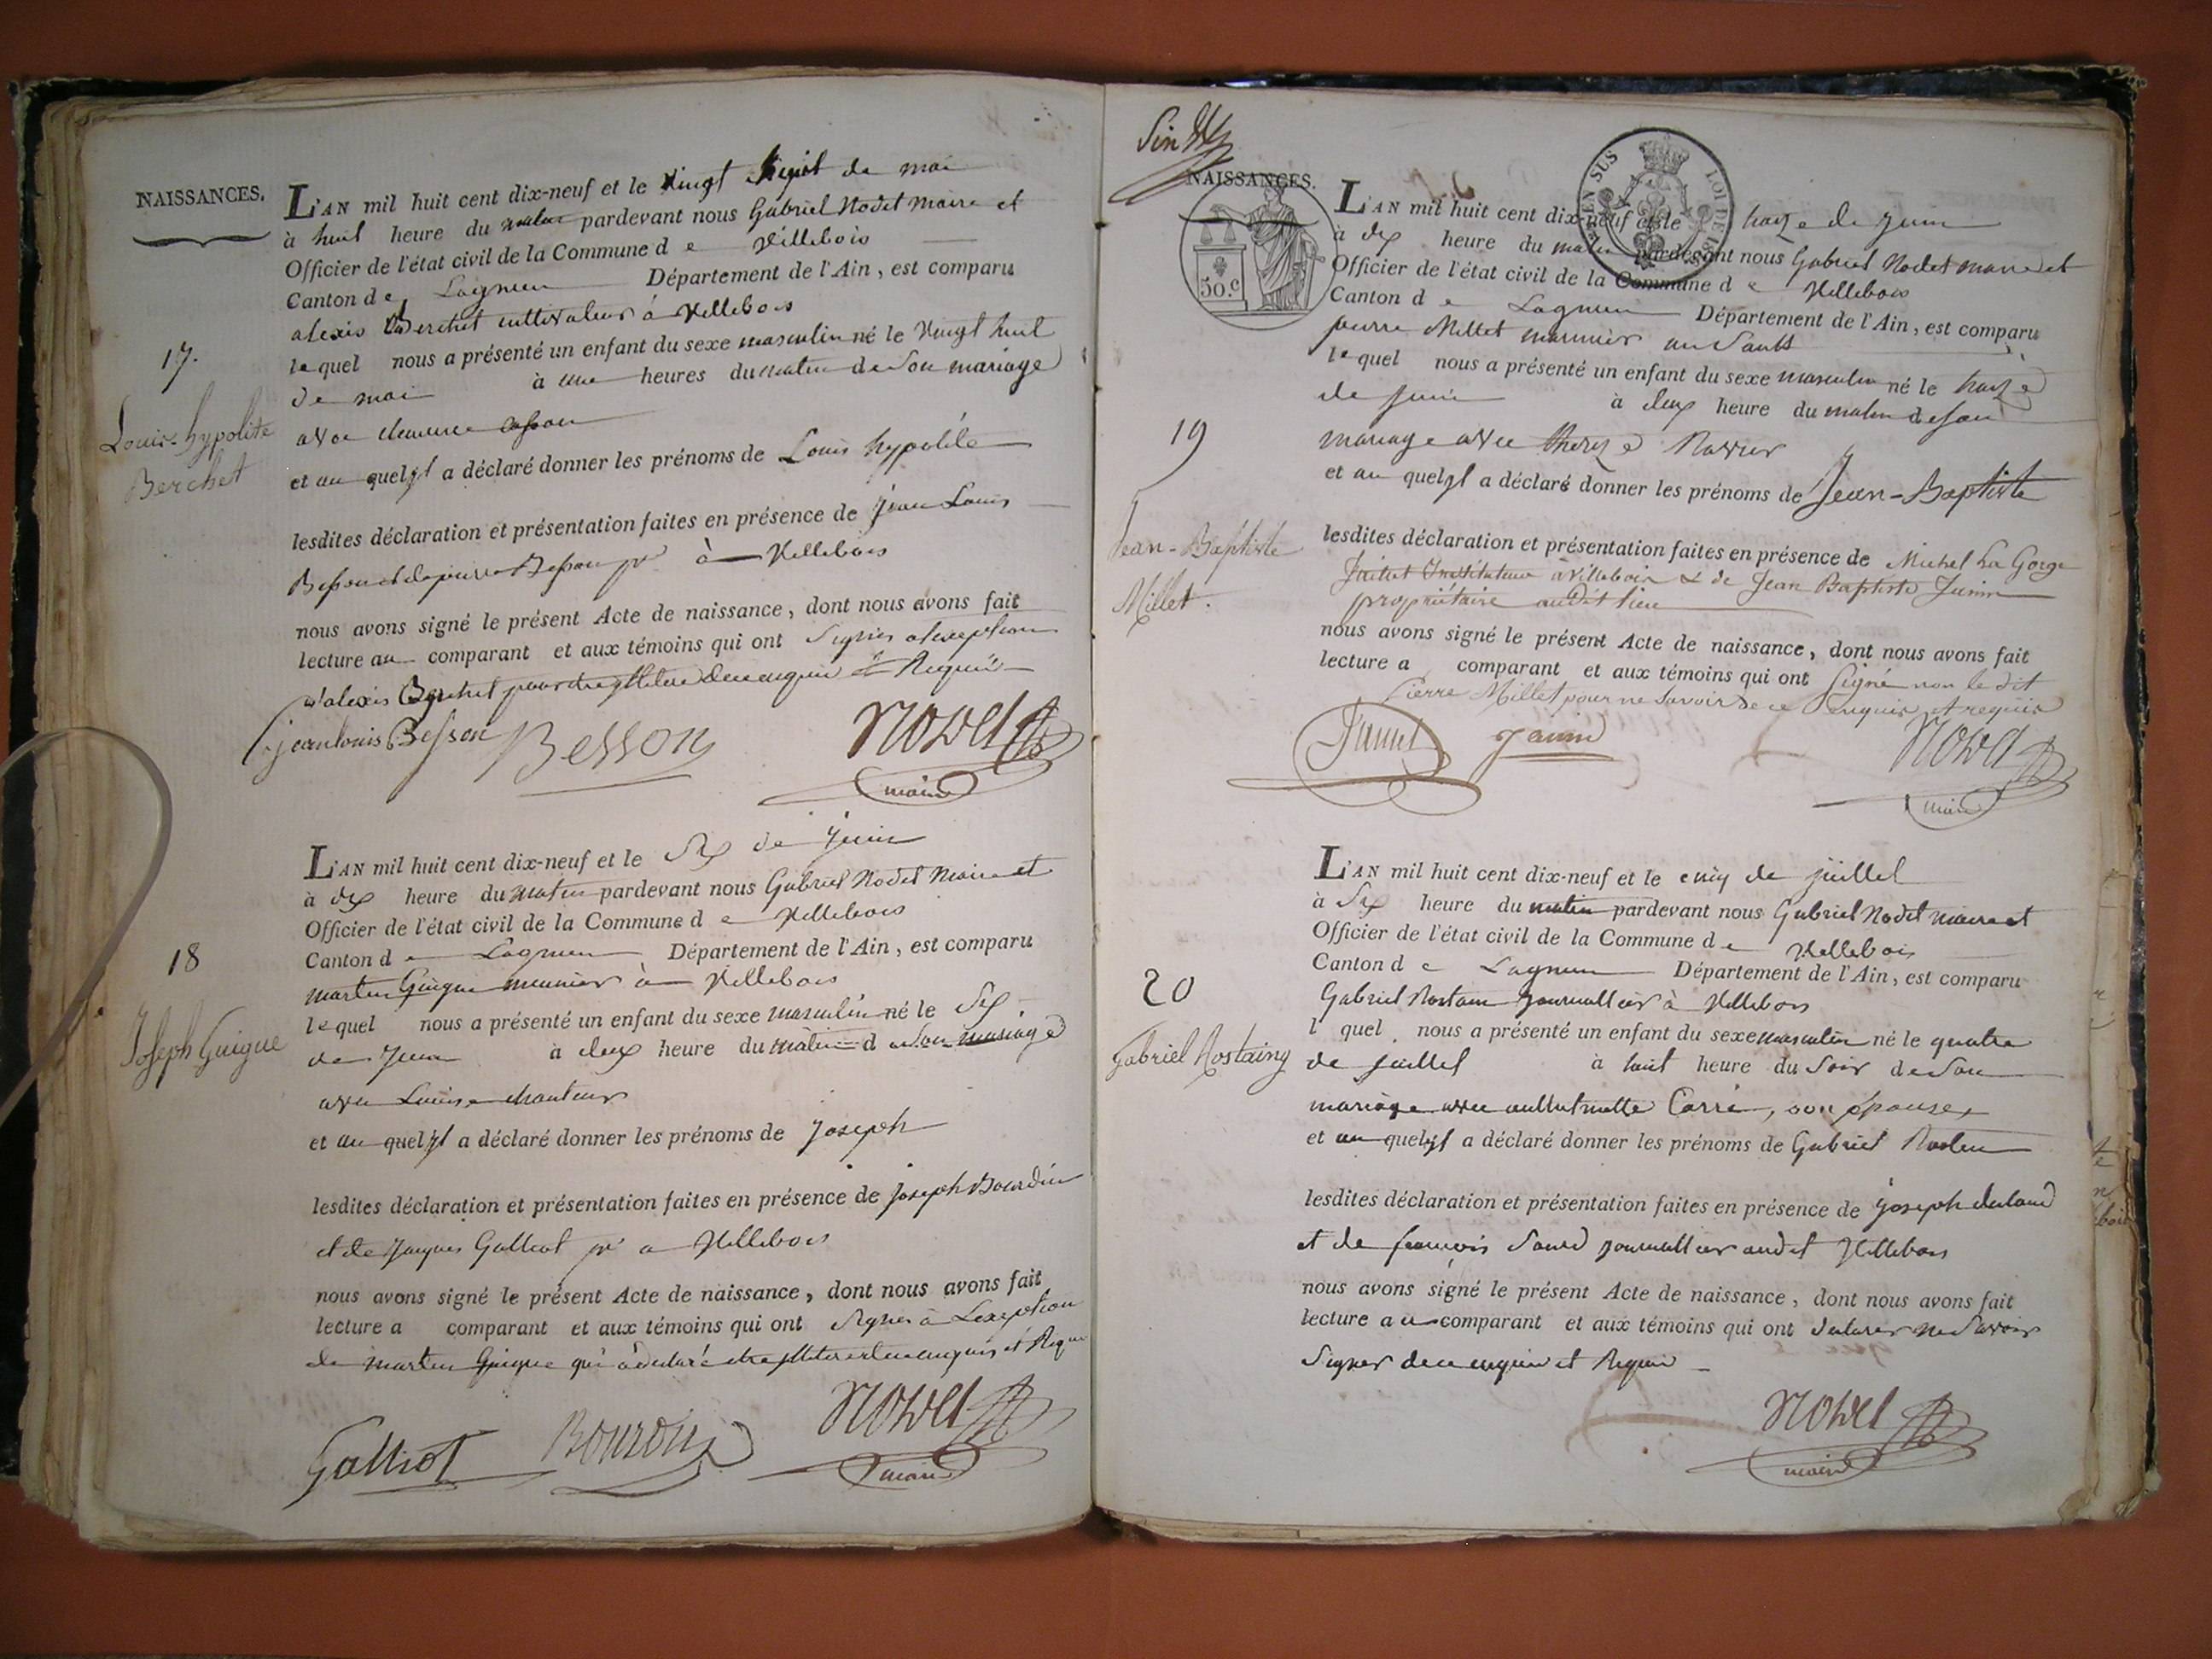 NAISSANCES.
L'AN mil huit cent dix-neuf et le vingt huit de mai
à huit heure du matin pardevant nous Gabriel Nodet maire et
Officier de l'état civil de la Commune d e Villebois
Canton d e Lagnieu Département de l'Ain, est comparu
alexis Berchet cultivateur à Villebois
17.
Louis-hypolite
Berchet
le quel nous a présenté un enfant du sexe masculin né le Vingt huit
de mai à une heures du matin de Son mariage
avec
et au quel il a déclaré donner les prénoms de Louis hypolite
lesdites déclaration et présentation faites en présence de jean Louis
Besson et de pierre Besson pre à Villebois
nous avons signé le présent Acte de naissance, dont nous avons fait
lecture au comparant et aux témoins qui ont Signés a lexception
d'alexis Berchet pour etre illitere de ce enquis et Requis
jean louis Besson Besson Nodet
maire
L'AN mil huit cent dix-neuf et le Six de juin
à dix heure du matin pardevant nous Gabriel Nodet Maire et
Officier de l'état civil de la Commune d e Villebois
Canton d e Lagnieu Département de l'Ain, est comparu
martin Guigue meunier à Villebois
18
Joseph Guigue
le quel nous a présenté un enfant du sexe masculin né le Six
de Juin à deux heure du matin d e Son mariage
avec Louise chanteur
et au quel il a déclaré donner les prénoms de joseph
lesdites déclaration et présentation faites en présence de joseph Bourdin
et de Jacques Galliot pre a Villebois
nous avons signé le présent Acte de naissance, dont nous avons fait
lecture a comparant et aux témoins qui ont Signés à Lexeption
de martin Guigue qui a déclaré etre illitere de ce enquis et Requis
Galliot Bourdin Nodet
maire
NAISSANCES.
50.C
EN SUS
LOI DE 18
L'AN mil huit cent dix-neuf et le traize de juin
à dix heure du matin pardevant nous Gabriel Nodet maire et
Officier de l'état civil de la Commune d e Villebois
Canton d e Lagnieu Département de l'Ain, est comparu
pierre Millet marinier au Sault
le quel nous a présenté un enfant du sexe masculin né le traize
de Juin à deux heure du matin de son
19
Jean-Baptiste
Millet.
mariage avec
et au quel il a déclaré donner les prénoms de Jean-Baptiste
lesdites déclaration et présentation faites en présence de Michel La Gorge
Juillet Instituteur à Villebois & de Jean Baptiste Janin
propriétaire audit lieu
nous avons signé le présent Acte de naissance, dont nous avons fait
lecture a comparant et aux témoins qui ont Signé non le dit
Pierre Millet pour ne Savoir de ce enquis et requis
Janin Nodet
maire
L'AN mil huit cent dix-neuf et le cinq de juillet
à Six heure du matin pardevant nous Gabriel Nodet maire et
Officier de l'état civil de la Commune d e Villebois
Canton d e Lagnieu Département de l'Ain, est comparu
Gabriel Rostain journallier à Villebois
20
Gabriel Rostaing
l quel nous a présenté un enfant du sexe masculin né le quatre
de juillet à huit heure du Soir de Son
mariage avec Carré, son épouse,
et au quel il a déclaré donner les prénoms de Gabriel
lesdites déclaration et présentation faites en présence de joseph
et de francois journallier audit Villebois
nous avons signé le présent Acte de naissance, dont nous avons fait
lecture au comparant et aux témoins qui ont déclarer ne Savoir
Signer de ce enquis et Requis
Nodet
maire